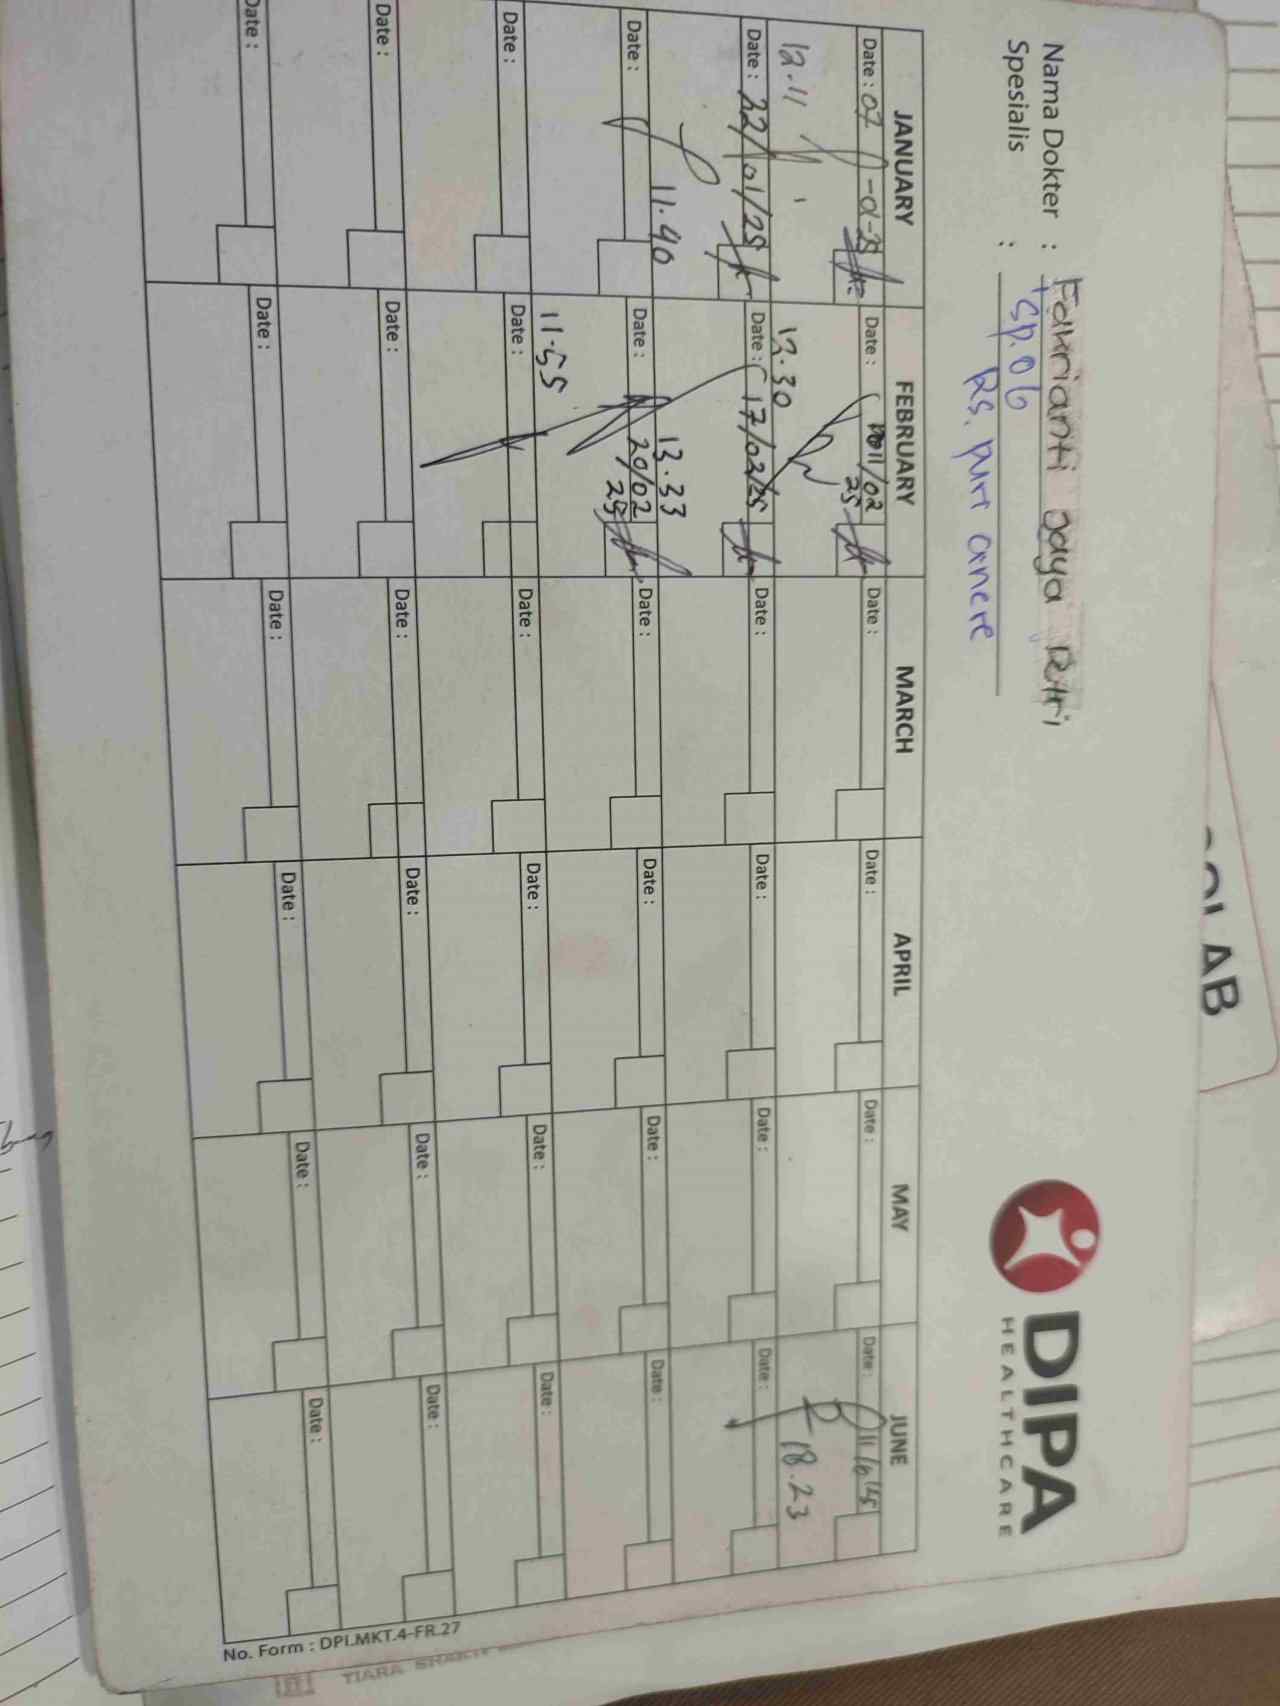 Nama Dokter : Fakrianti Jaya Putri
Spesialis : Sp.OG
Rs. puri cinere
DIPA
HEALTHCARE
JANUARY FEBRUARY MARCH APRIL MAY JUNE
Date : 07-01-25 Date : 11/02 25 Date : Date : Date : Date : 11/6/25
12.11 12.30 18.23
Date : 22/01/25 Date : 17/02/25 Date : Date : Date : Date :
11.40 13.33
Date : Date : 20/02 25 Date : Date : Date : Date :
11.55
Date : Date : Date : Date : Date : Date :
Date : Date : Date : Date : Date : Date :
Date : Date : Date : Date : Date : Date :
No. Form : DPI.MKT.4-FR.27
TIARA
LAB